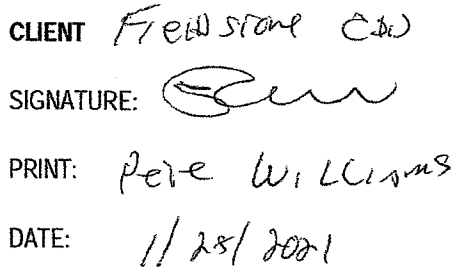 CLIENT Fieldstone CDD
SIGNATURE:
PRINT: Pete Williams
DATE: 1/28/2021